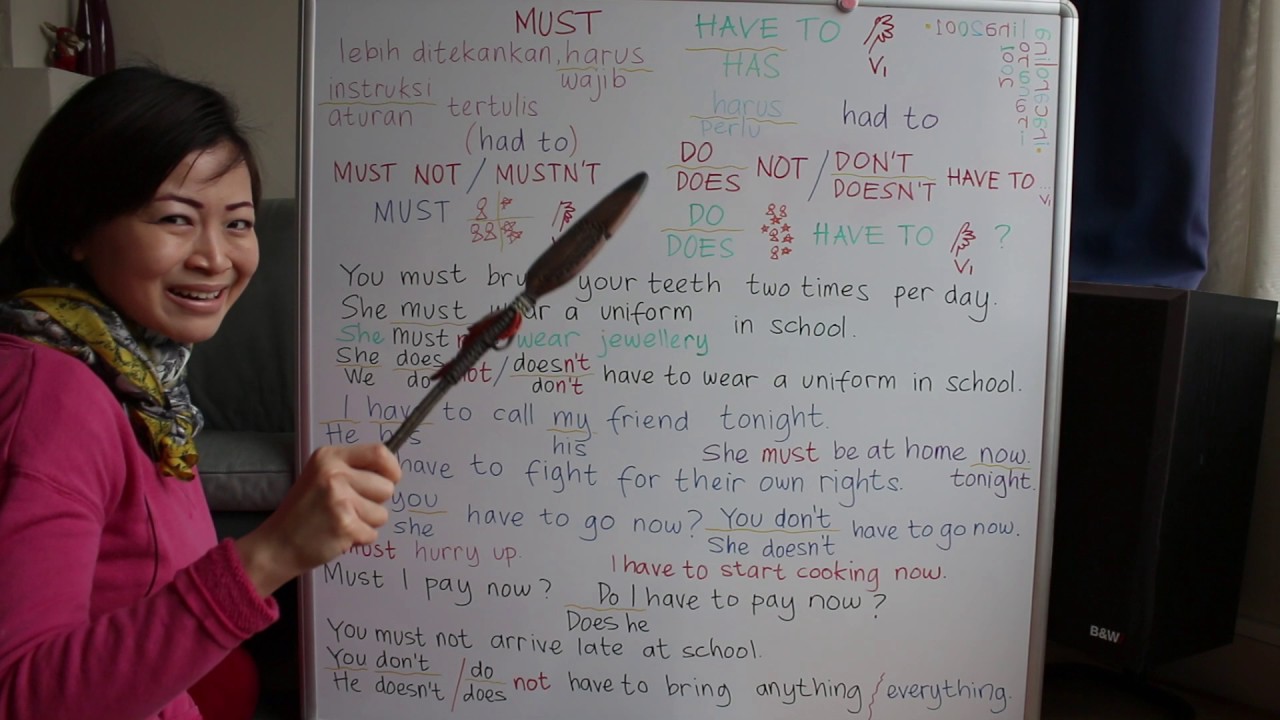 MUST
HAVE TO
V1
HAS
lebih ditekankan, harus
wajib
instruksi
aturan tertulis
(had to)
harus
perlu
had to
MUST NOT / MUSTN'T
DO
DOES
NOT / DON'T
DOESN'T
HAVE TO ...
V1
MUST
DO
DOES
HAVE TO
?
V1
You must your teeth two times per day.
She must a uniform in school.
She must wear jewellery
She does
We do
not / doesn't
don't
have to wear a uniform in school.
I have to call my friend tonight.
He has
his
She must be at home now.
tonight.
have to fight for their own rights.
you
she
have to go now?
You don't
She doesn't
have to go now.
must hurry up.
I have to start cooking now.
Must I pay now?
Do I have to pay now?
Does he
You must not arrive late at school.
You don't
He doesn't
/ do
does
not have to bring anything { everything.
B&W